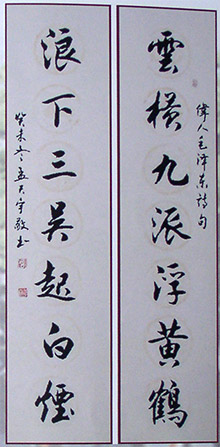 偉人毛澤東詩句
雲橫九派浮黃鶴
浪下三吳起白煙
癸未冬孟天宇敬书